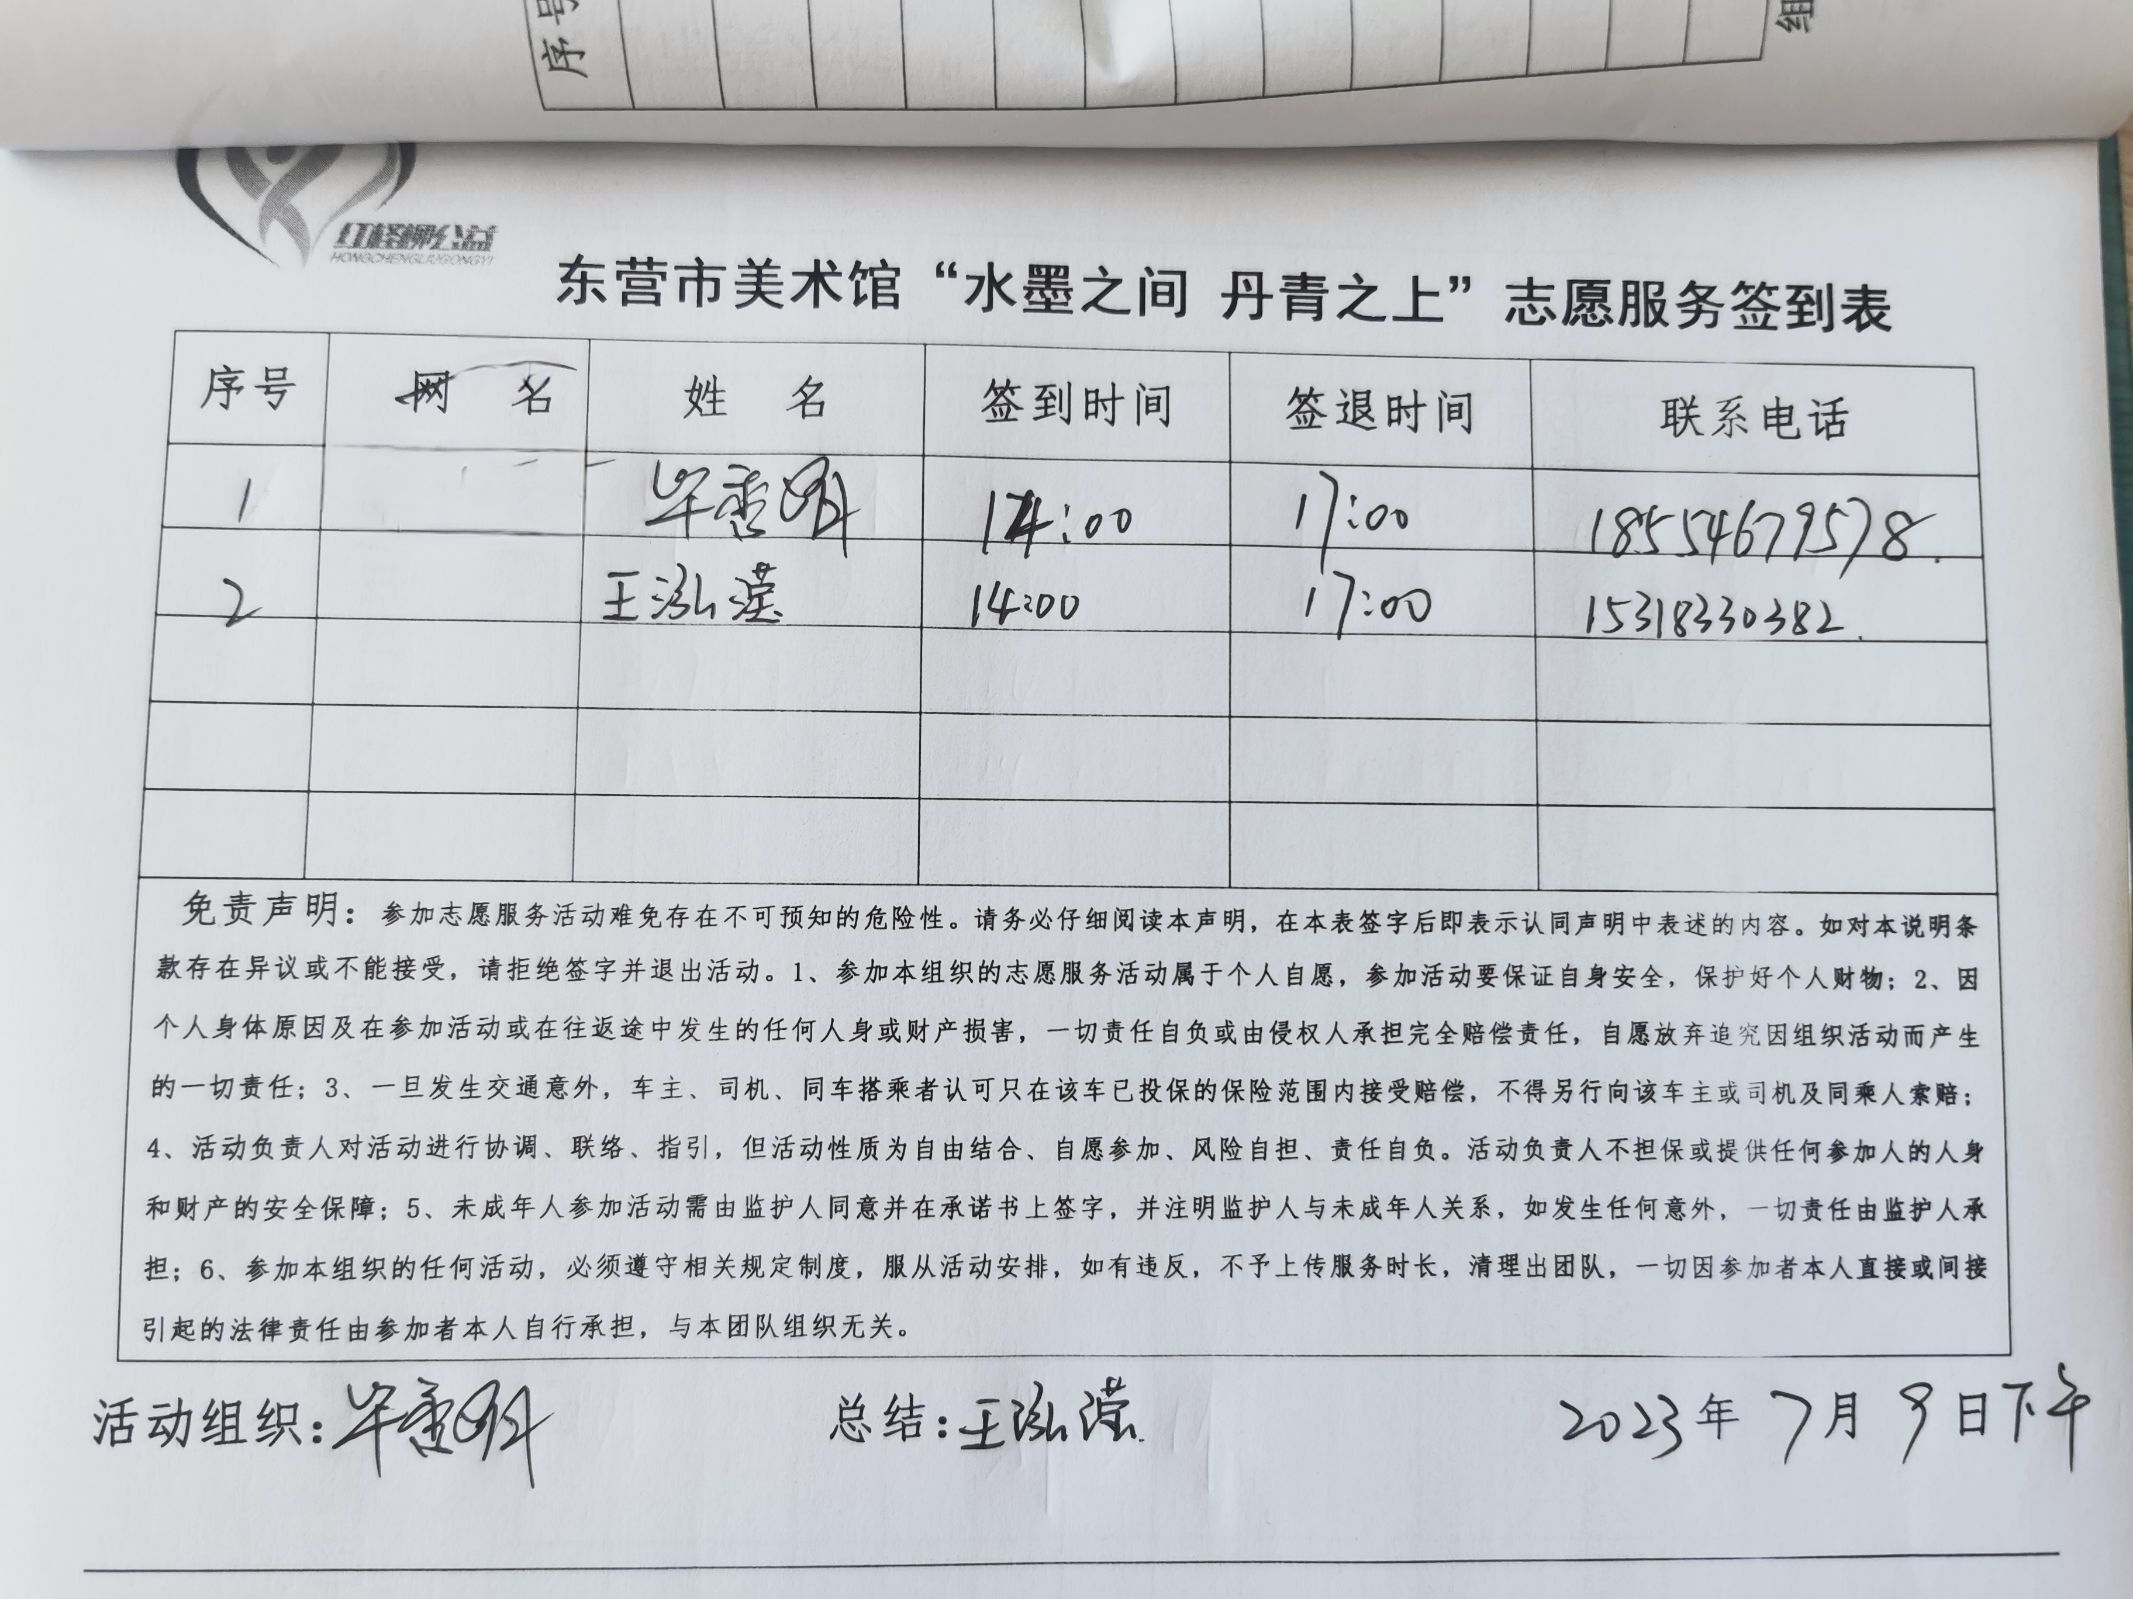 序号
组
红柽柳公益
HONGCHENGLIUGONGYI
东营市美术馆“水墨之间 丹青之上”志愿服务签到表
序号 网 名 姓 名 签到时间 签退时间 联系电话
1 14:00 17:00 18554679578
2 王泓滢 14:00 17:00 15318330382
免责声明：参加志愿服务活动难免存在不可预知的危险性。请务必仔细阅读本声明，在本表签字后即表示认同声明中表述的内容。如对本说明条
款存在异议或不能接受，请拒绝签字并退出活动。1、参加本组织的志愿服务活动属于个人自愿，参加活动要保证自身安全，保护好个人财物；2、因
个人身体原因及在参加活动或在往返途中发生的任何人身或财产损害，一切责任自负或由侵权人承担完全赔偿责任，自愿放弃追究因组织活动而产生
的一切责任；3、一旦发生交通意外，车主、司机、同车搭乘者认可只在该车已投保的保险范围内接受赔偿，不得另行向该车主或司机及同乘人索赔；
4、活动负责人对活动进行协调、联络、指引，但活动性质为自由结合、自愿参加、风险自担、责任自负。活动负责人不担保或提供任何参加人的人身
和财产的安全保障；5、未成年人参加活动需由监护人同意并在承诺书上签字，并注明监护人与未成年人关系，如发生任何意外，一切责任由监护人承
担；6、参加本组织的任何活动，必须遵守相关规定制度，服从活动安排，如有违反，不予上传服务时长，清理出团队，一切因参加者本人直接或间接
引起的法律责任由参加者本人自行承担，与本团队组织无关。
活动组织： 总结：王泓滢 2023年7月9日下午